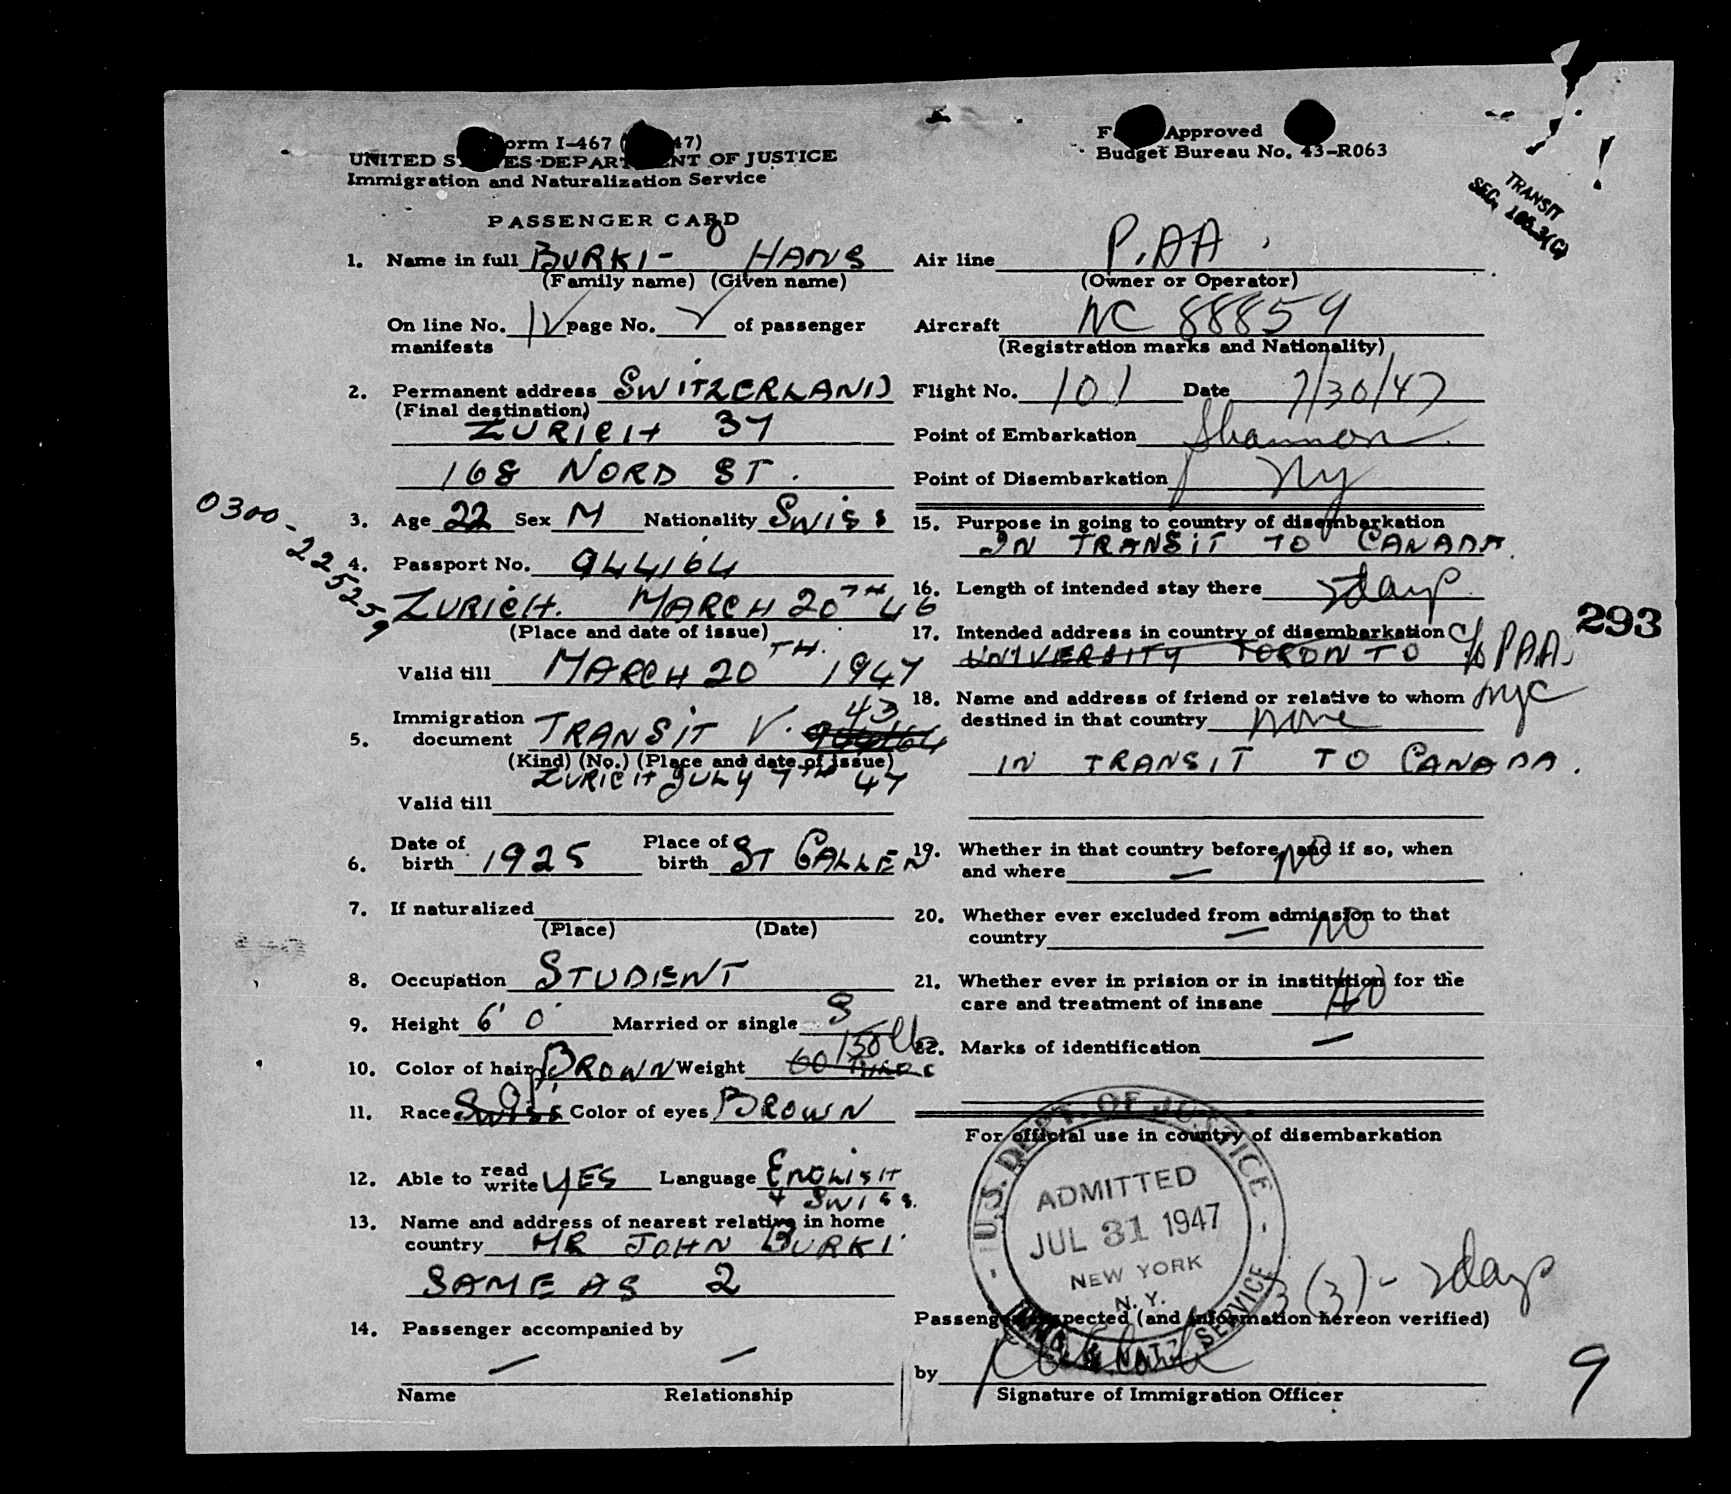 Form I-467 ( 47)
UNITED STATES DEPARTMENT OF JUSTICE
Immigration and Naturalization Service
PASSENGER CARD
1. Name in full BURKI - HANS
(Family name) (Given name)
On line No. 12 page No. 2 of passenger
manifests
2. Permanent address SWITZERLAND
(Final destination)
ZURICH 37
168 NORD ST.
3. Age 22 Sex M Nationality SWISS
4. Passport No. 944164
ZURICH. MARCH 20TH 46
(Place and date of issue)
Valid till MARCH 20TH. 1947
5. Immigration document TRANSIT V. 43
(Kind) (No.) (Place and date of issue)
ZURICH JULY 7TH 47
Valid till
6. Date of birth 1925 Place of birth ST GALLEN
7. If naturalized
(Place) (Date)
8. Occupation STUDENT
9. Height 6' 0" Married or single S
10. Color of hair BROWN Weight 60 150 lbs
11. Race Swiss Color of eyes BROWN
12. Able to read write YES Language ENGLISH
+ SWISS.
13. Name and address of nearest relative in home
country MR JOHN BURKI
SAME AS 2
14. Passenger accompanied by
— —
Name Relationship
0300-225259
Form Approved
Budget Bureau No. 43-R063
TRANSIT
SEC.
Air line P.AA
(Owner or Operator)
Aircraft NC 88859
(Registration marks and Nationality)
Flight No. 101 Date 7/30/47
Point of Embarkation Shannon
Point of Disembarkation NY
15. Purpose in going to country of disembarkation
IN TRANSIT TO CANADA.
16. Length of intended stay there 2 days
17. Intended address in country of disembarkation c/o PAA
UNIVERSITY TORONTO
nyc
293
18. Name and address of friend or relative to whom
destined in that country none
IN TRANSIT TO CANADA.
19. Whether in that country before, and if so, when
and where — NO
20. Whether ever excluded from admission to that
country — NO
21. Whether ever in prision or in institution for the
care and treatment of insane NO
22. Marks of identification —
For official use in country of disembarkation
U.S. DEPT. OF JUSTICE
ADMITTED
JUL 31 1947
NEW YORK
N.Y.
IMMG. & NATZ. SERVICE
3(3) - 2 days
Passenger inspected (and information hereon verified)
by
Signature of Immigration Officer
9